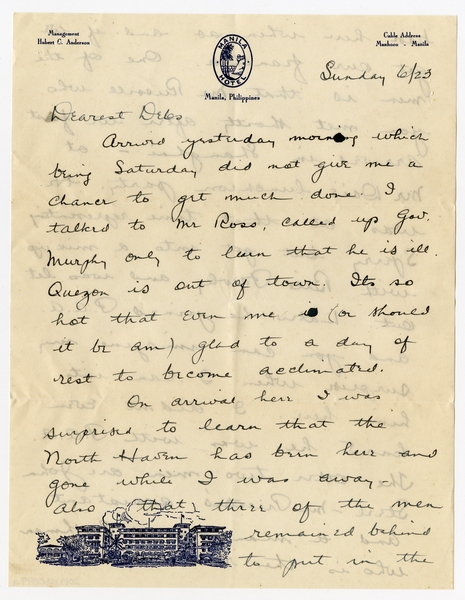 Management
Hubert C. Anderson
MANILA HOTEL
Manila, Philippines
Cable Address
Manhoco - Manila
Sunday 6/23
Dearest Debs
Arrived yesterday morning which
being Saturday did not give me a
chance to get much done. I
talked to Mr Ross, called up Gov.
Murphy only to learn that he is ill.
Quezon is out of town. Its so
hot that even me is (or should
it be am) glad to a day of
rest to become acclimated.
On arrival here I was
surprised to learn that the
North Haven has been here and
gone while I was away -
also that three of the men
remained behind
to put in the